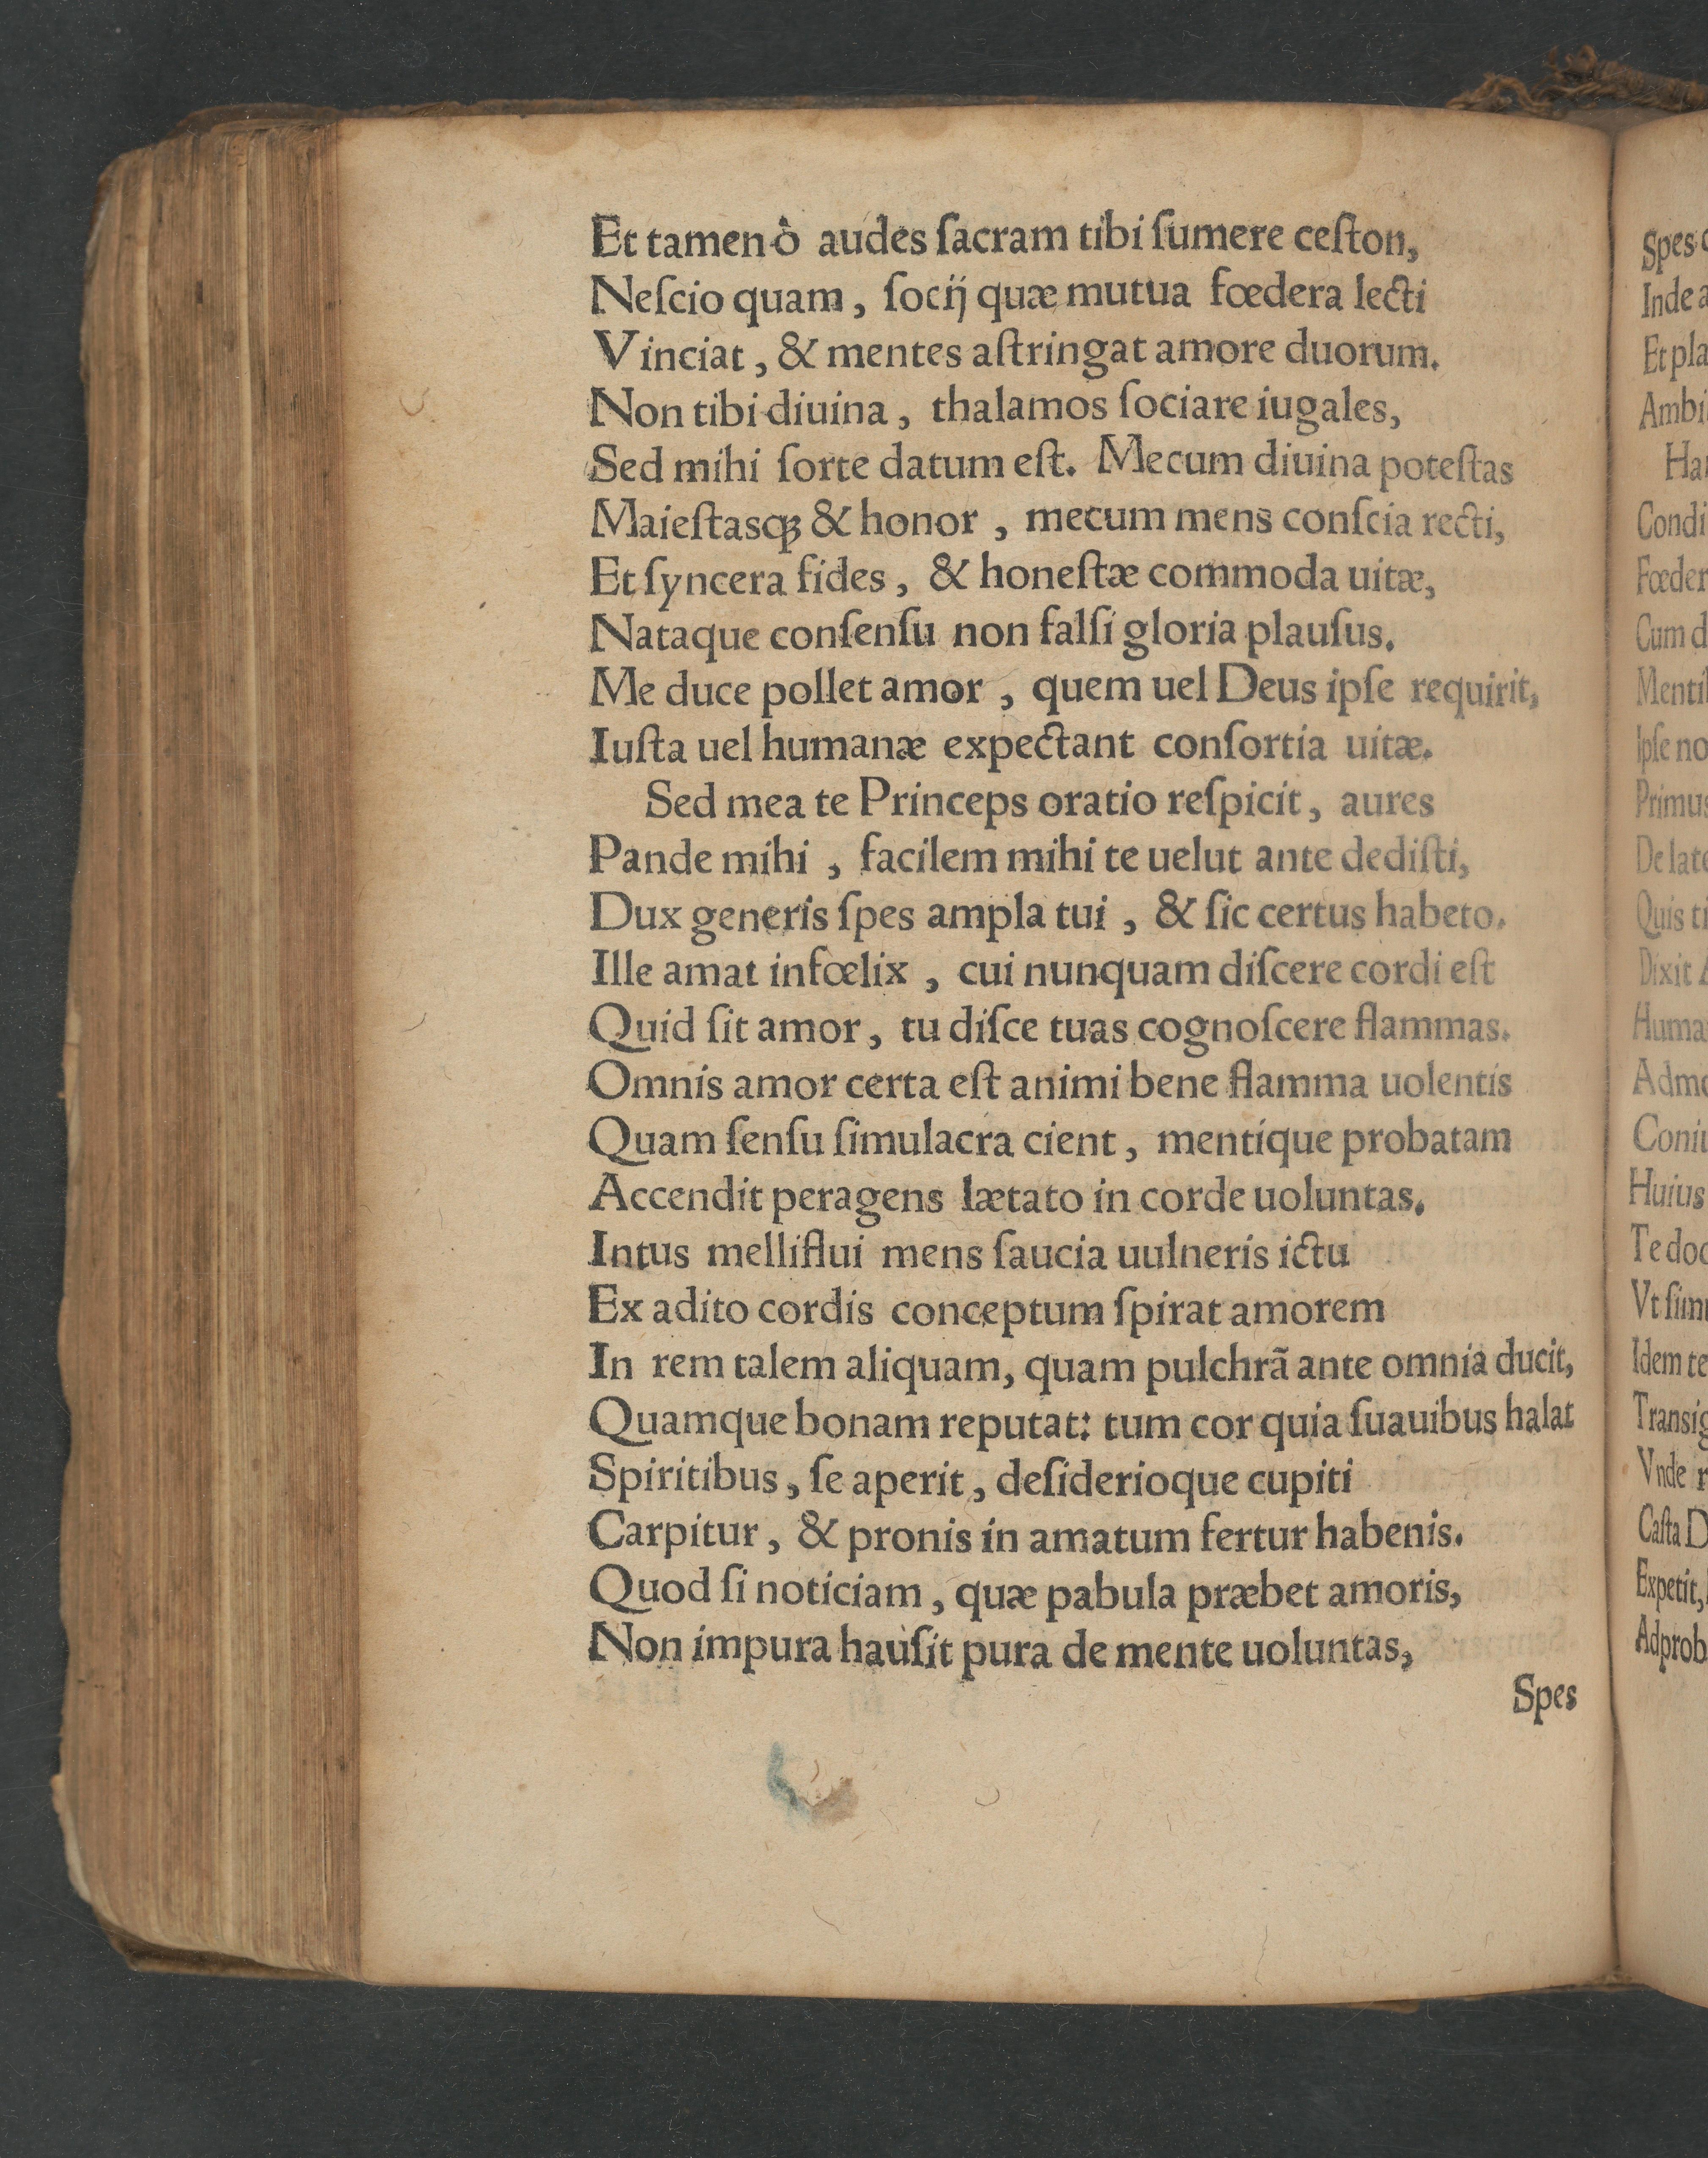 Et tamen ô audes ſacram tibi ſumere ceſton,
Neſcio quam, ſocij quæ mutua fœdera lecti
Vinciat, & mentes aſtringat amore duorum.
Non tibi diuina, thalamos ſociare iugales,
Sed mihi ſorte datum eſt. Mecum diuina poteſtas
Maieſtasqꝫ & honor, mecum mens conſcia recti,
Et ſyncera fides, & honeſtæ commoda uitæ,
Nataque conſenſu non falſi gloria plauſus.
Me duce pollet amor, quem uel Deus ipſe requirit,
Iuſta uel humanæ expectant conſortia uitæ.
Sed mea te Princeps oratio reſpicit, aures
Pande mihi, facilem mihi te uelut ante dediſti,
Dux generis ſpes ampla tui, & ſic certus habeto.
Ille amat infœlix, cui nunquam diſcere cordi eſt
Quid ſit amor, tu diſce tuas cognoſcere flammas.
Omnis amor certa eſt animi bene flamma uolentis
Quam ſenſu ſimulacra cient, mentique probatam
Accendit peragens lætato in corde uoluntas.
Intus melliflui mens ſaucia uulneris ictu
Ex adito cordis conceptum ſpirat amorem
In rem talem aliquam, quam pulchrã ante omnia ducit,
Quamque bonam reputat: tum cor quia ſuauibus halat
Spiritibus, ſe aperit, deſiderioque cupiti
Carpitur, & pronis in amatum fertur habenis.
Quod ſi noticiam, quæ pabula præbet amoris,
Non impura hauſit pura de mente uoluntas,
Spes
Spes
Inde
Et
Cum
Ipſe
Primus
Quis
Dixit
Huius
Te
Vt
Idem te
Vnde
Caſta
Expetit,